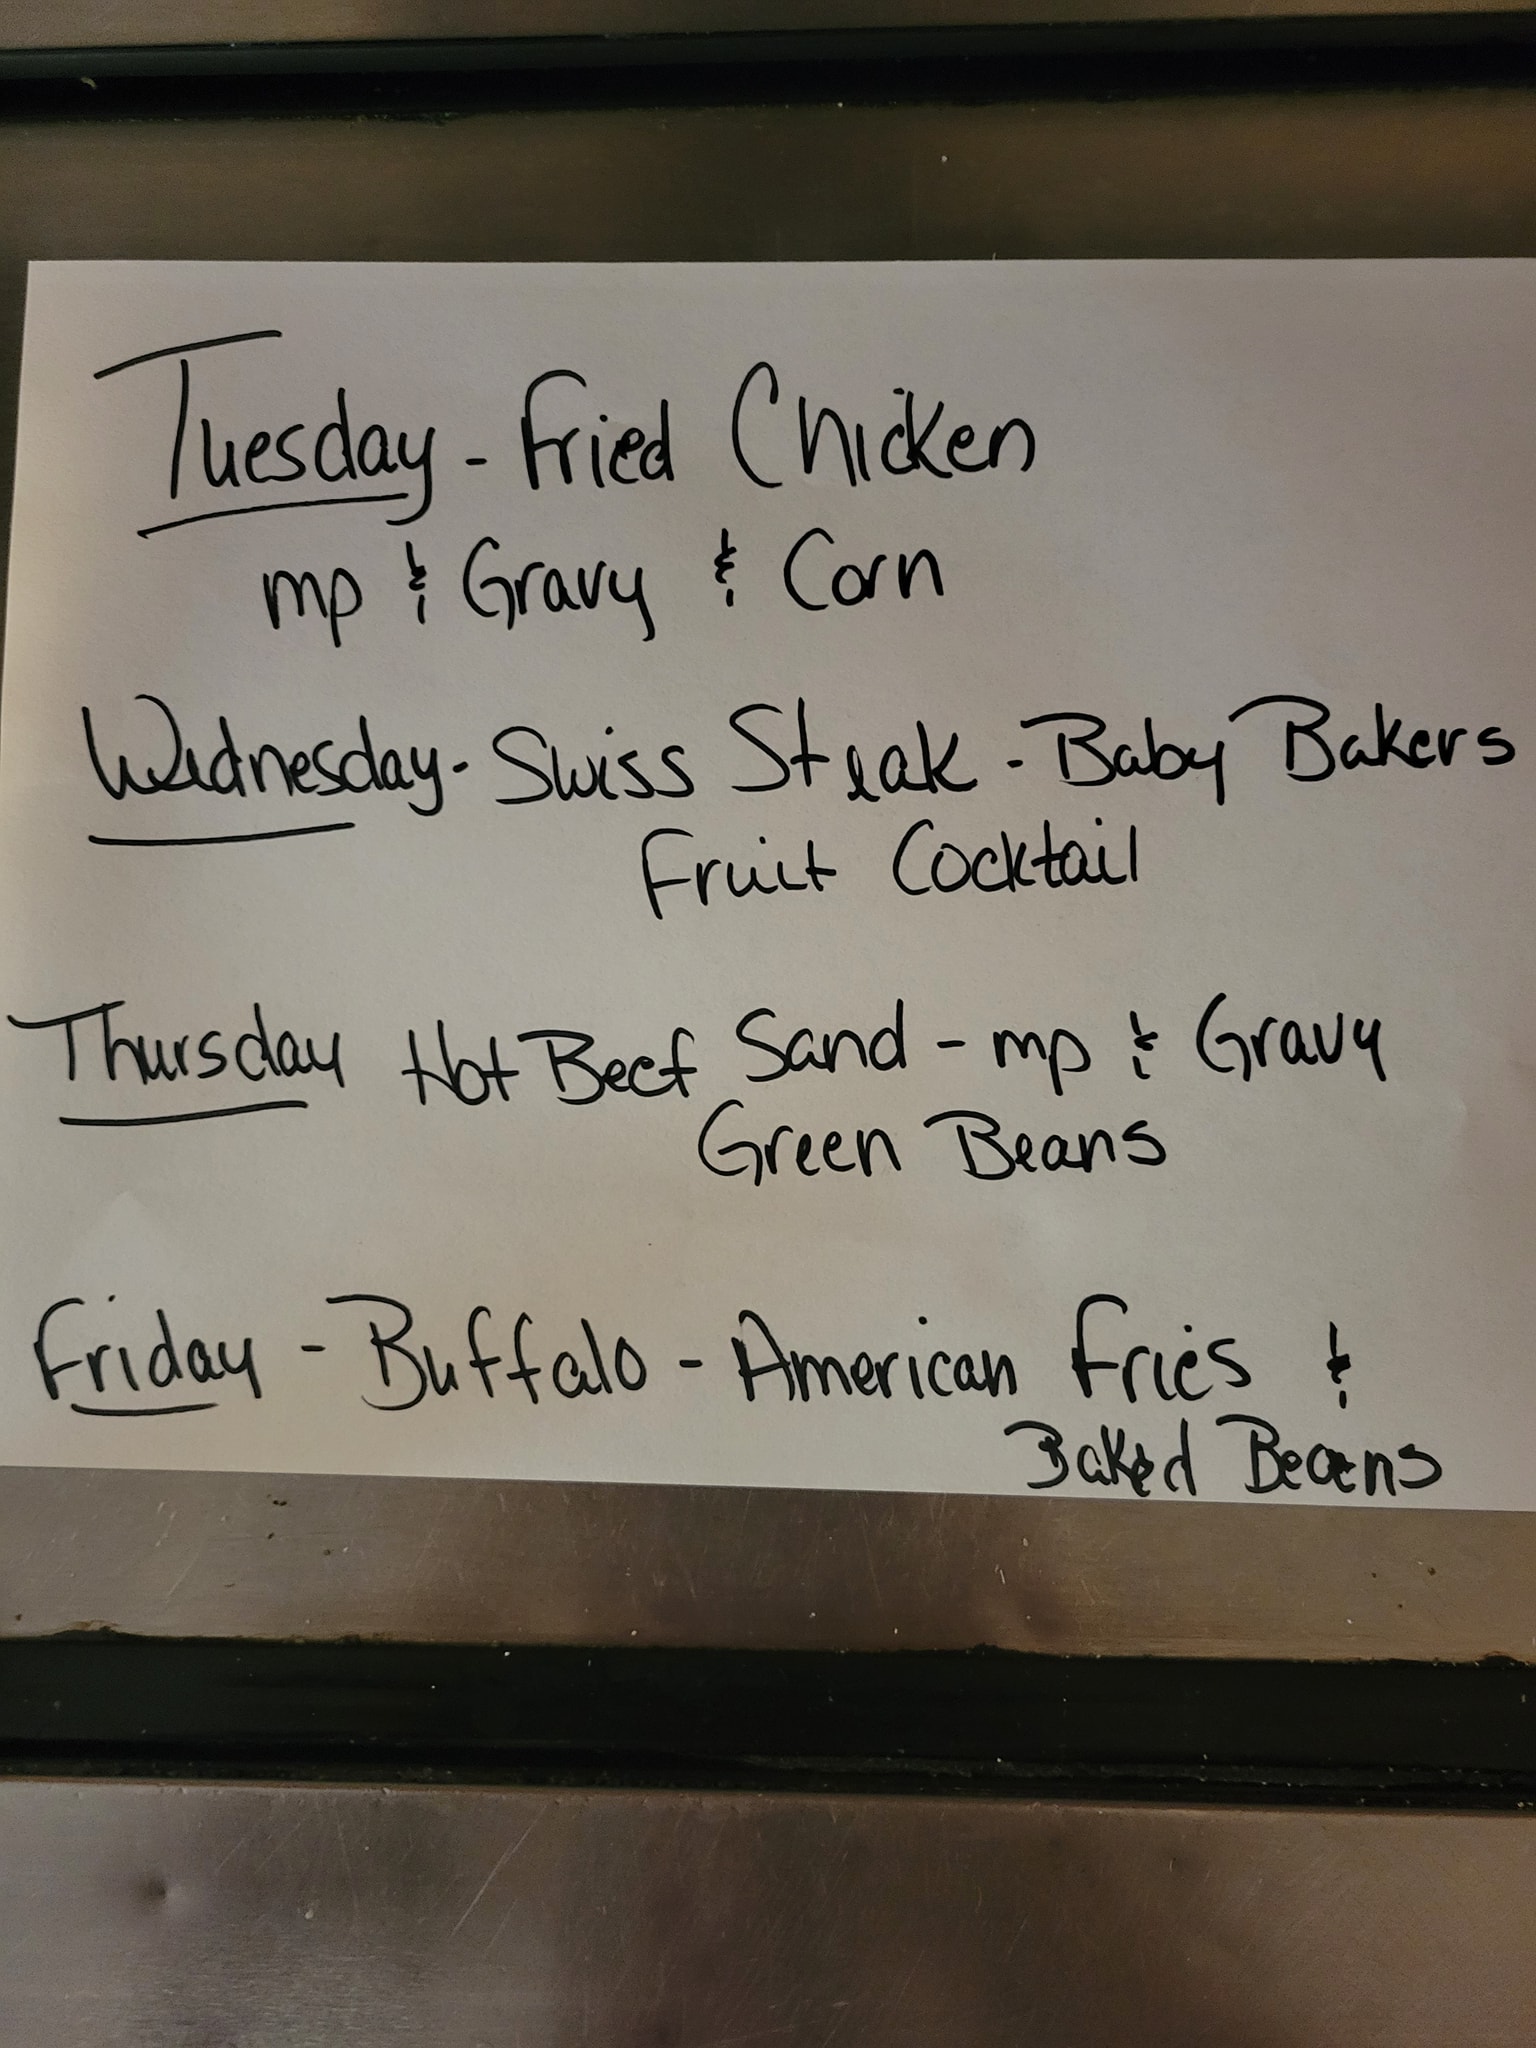 Tuesday - Fried Chicken
mp & Gravy & Corn
Wednesday - Swiss Steak - Baby Bakers
Fruit Cocktail
Thursday Hot Beef Sand - mp & Gravy
Green Beans
Friday - Buffalo - American Fries &
Baked Beans